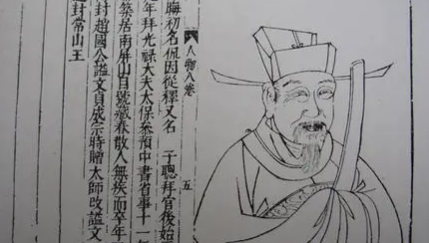 人物八卷
五
晦初名侃因從釋又名 子聰拜官後始
年拜光祿大夫太保參預中書省事十一
築居南屏山自號藏春散人無疾而卒年
封趙國公諡文貞成宗時贈太師改諡文
封常山王